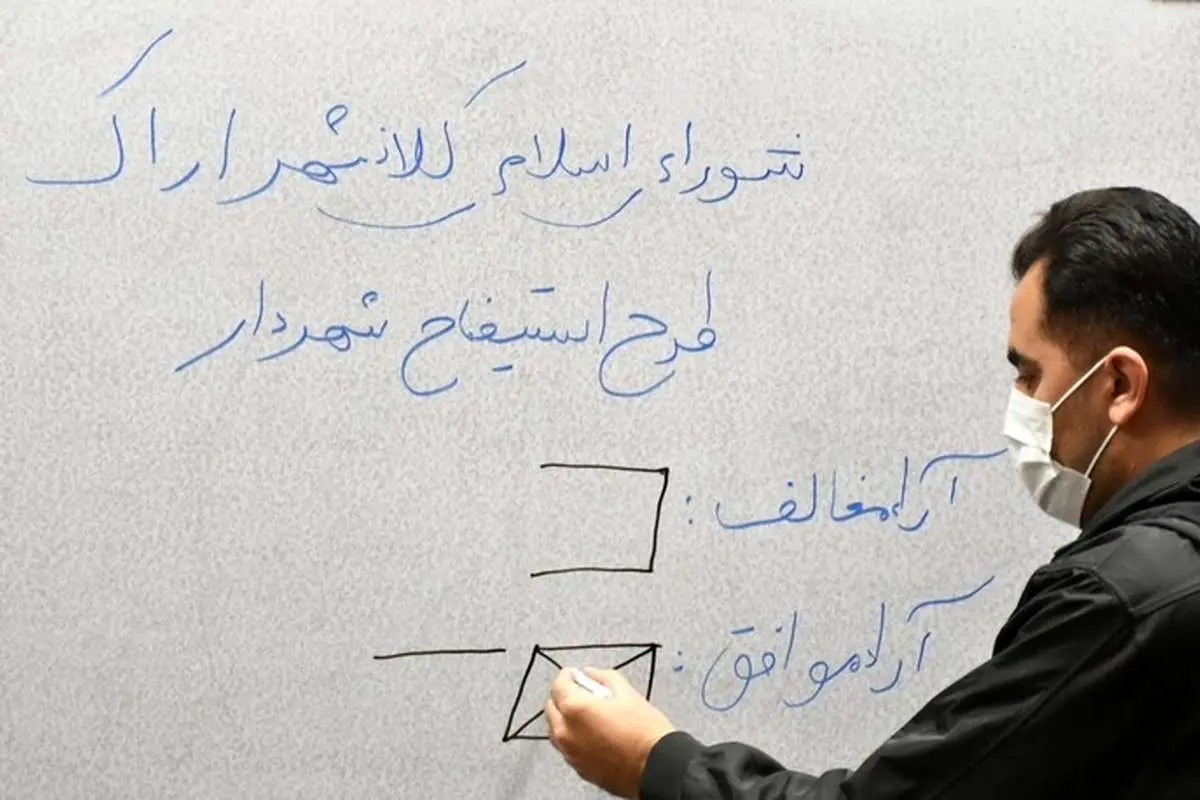 شوراء اسلامی کلانشهر اراک
طرح استیضاح شهردار
آراء مخالف :
آراء موافق :